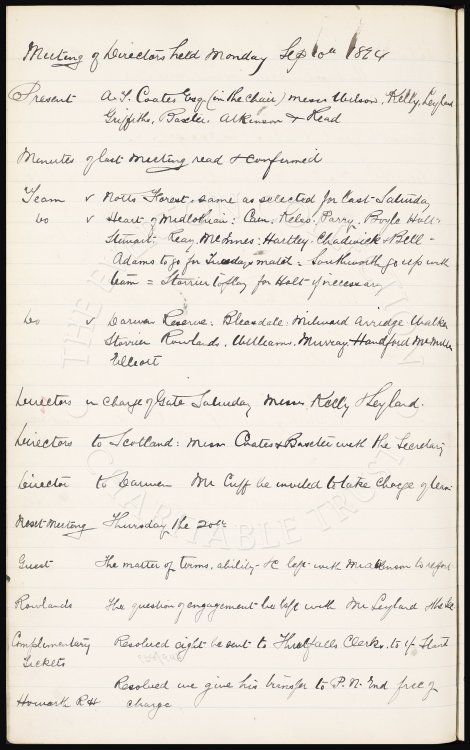 Meeting of Directors held Monday Sep 10th 1894
Present A. T. Coates Esq (in the chair) Messrs Wilson, Kelly, Leyland
Griffiths, Baxter, Atkinson & Head
Minutes of last meeting read & confirmed
Team v Notts Forest, same as selected for last Saturday
Do v Heart of Midlothian: Kelso. Parry. Boyle Holt-
Stewart. Reay. McInnes: Hartley. Chadwick & Bell -
Adams to go for Tuesdays match = Southworth go up with
team = Storrier to play for Holt if necessary
Do v Darwen Reserve: Bleasdale. Milward Arridge Walker
Storrier Rowlands. Williams. Murray. Handford McMillan
Elliott
Directors in charge of Gate Saturday Messrs Kelly & Leyland.
Directors to Scotland: Messrs Coates & Baxter with the Secretary
Director to Darwen Mr Cuff be invited to take charge of team
Next Meeting Thursday the 20th
Guest The matter of terms, ability &c left with Mr Atkinson to report
Rowlands The question of engagement be left with Mr Leyland & the Sec
Complimentary Resolved eight be sent to Threlfalls Clerks, to
Tickets
Resolved we give his transfer to P. N. End free of
Howarth R H charge
THE EVERTON COLLECTION
CHARITABLE TRUST